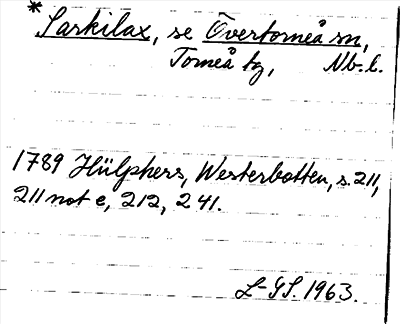 * Särkilax, se Övertorneå sn,
Torneå tg, Nb. l.
1789 Hülphers, Westerbotten, s. 211,
211 not e, 212, 241.
L-GS. 1963.